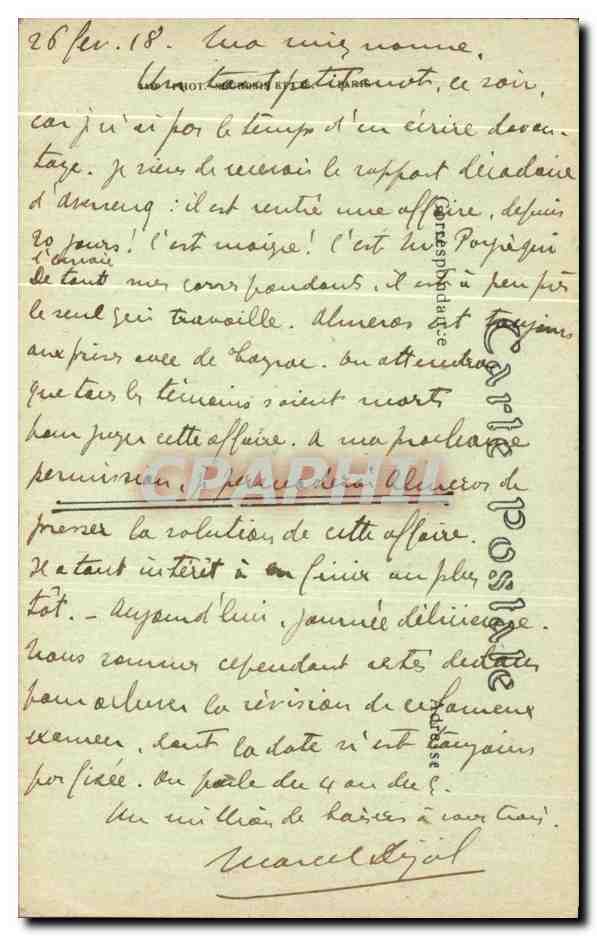 26 fév. 18. Ma mignonne,
Un tout petit mot, ce soir,
car je n'ai pas le temps d'en écrire davan-
tage. Je viens de recevoir le rapport décadaire
d' : il est rentré une affaire, depuis
20 jours! C'est maigre! C'est Mr qui
l'envoie
De tout mes correspondants, il est à peu près
le seul qui travaille. Almeras est toujours
aux prises avec de . On attendra
que tous les témoins soient morts
pour juger cette affaire. A ma prochaine
permission, je persuaderai Almeras de
presser la solution de cette affaire.
Il a tout intérêt à en finir au plus
tôt. - Aujourd'hui, journée délicieuse.
Nous sommes cependant restés dedans
pour achever la révision de ce fameux
examen, dont la date n'est toujours
pas fixée. On parle du 4 au du 5.
Un million de baisers à vous trois.
Marcel
Carte postale
Correspondance
Adresse
PHOT. PARIS
CPAPHIL